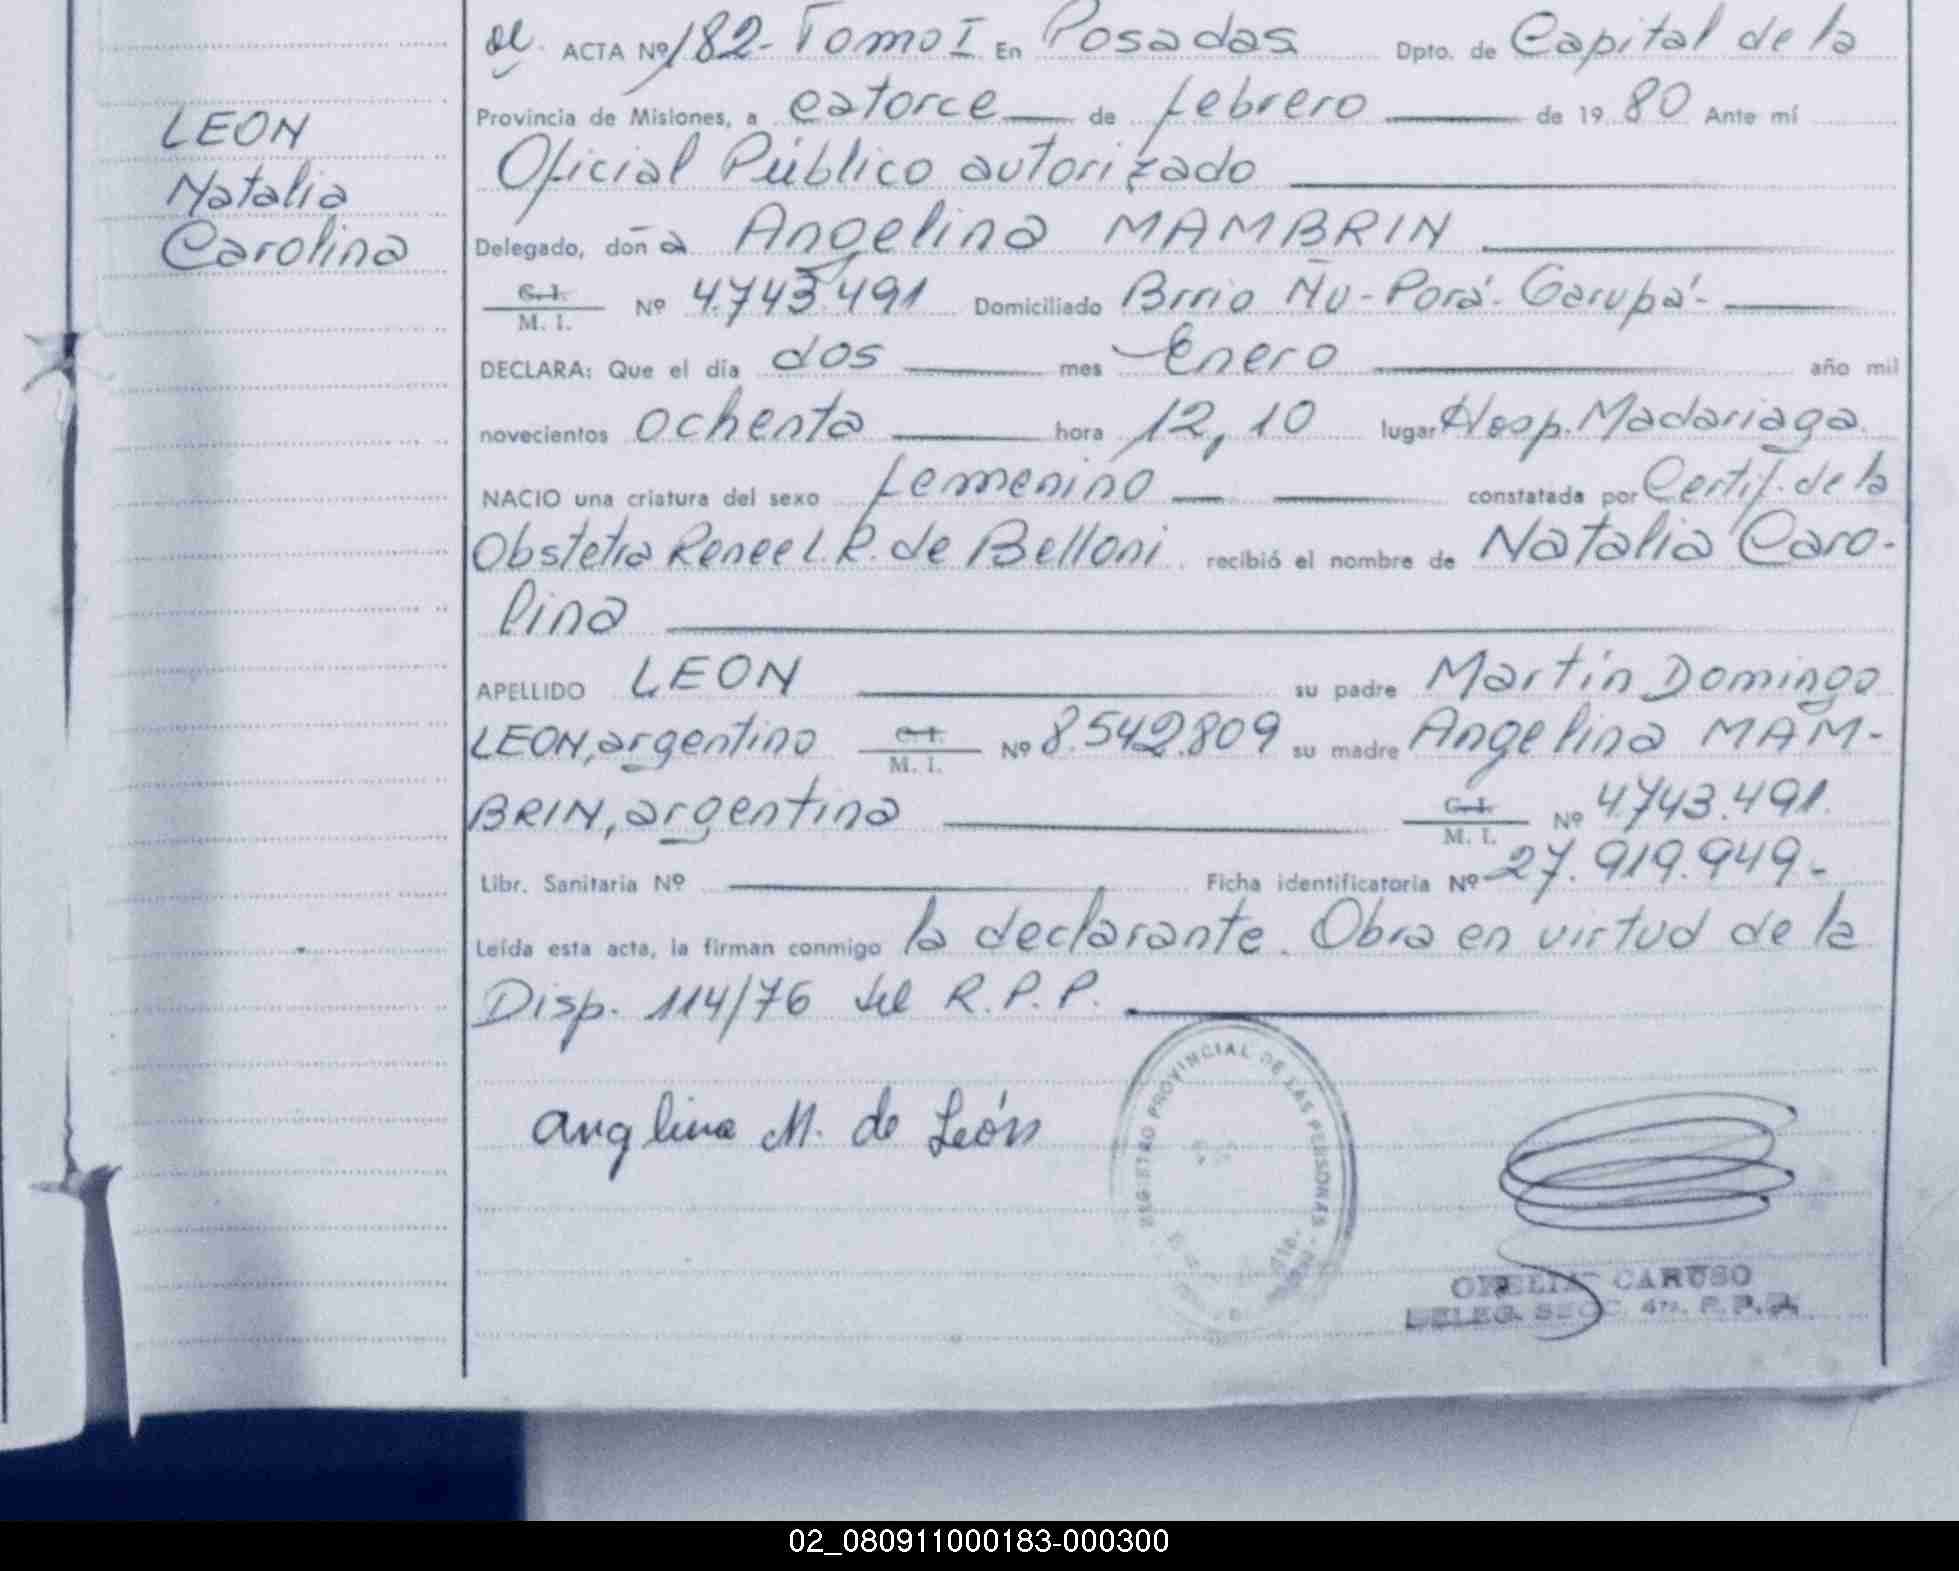 LEON
Natalia
Carolina
ACTA Nº 182- Tomo I En Posadas Dpto. de Capital de la
Provincia de Misiones, a catorce de febrero de 19 80 Ante mí
Oficial Público autorizado
Delegado, doña Angelina MAMBRIN
C.I. M. I. Nº 4.743.491 Domiciliado Brrio Ñu-Porá- Garupá-
DECLARA: Que el día dos mes Enero año mil
novecientos ochenta hora 12,10 lugar Hosp. Madariaga
NACIO una criatura del sexo femenino constatada por Certif. de la
Obstetra Renee L. R. de Belloni recibió el nombre de Natalia Caro-
lina
APELLIDO LEON su padre Martín Domingo
LEON, argentino C.I. M. I. Nº 8.542.809 su madre Angelina MAM-
BRIN, argentina C.I. M. I. Nº 4.743.491.
Libr. Sanitaria Nº Ficha identificatoria Nº 27.919.949-
Leída esta acta, la firman conmigo la declarante. Obra en virtud de la
Disp. 114/76 del R.P.P.
REGISTRO PROVINCIAL DE LAS PERSONAS
Anglina M. de León
CARUSO
DELEG. SECC. 4ta. R.P.P.
02_080911000183-000300